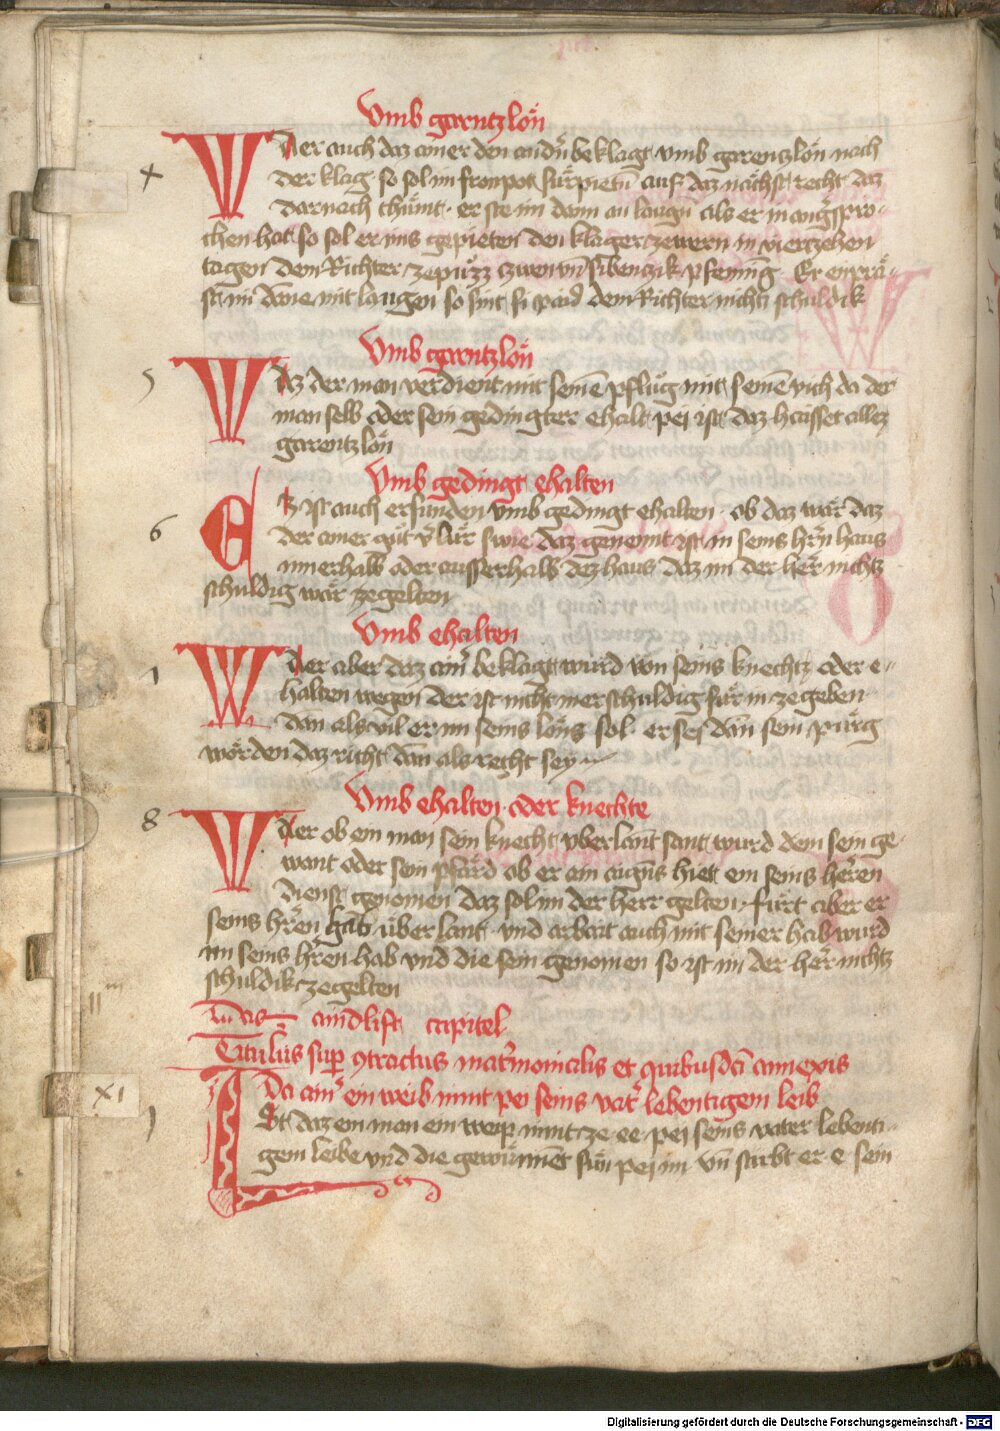 Vmb garntzlön
Wer auch daz ainer den andn̄ beklagt vmb garentzlön nach
4
der klag so sol im fronpot fürpieten auf daz nächst recht daz
darnach chümt · er ste im dann an laugn̄ als er in angespro-
chen hat so sol er ins gepieten den klager zewern in viertzehen
tagen dem Richter ze puͤzz zwen vnd sibenczik pfening · Er
st im dane mit laugen so sint si paid dem Richter nichtz schuldik
Vmb garntzlön
5
Waz der man verdient mit seinē pflüg mit seinē vich da der
man selb oder sein gedingter ehalt pei ist daz haisset allez
garentzlön
Vmb gedingt ehalten
Ez ist auch erfunden vmb gedingt ehalten · ob daz wär daz
6
der ainer güt v̄lür swie daz genennt ist in seins hr̄n haus
innerhalb oder ausserhalb dez haus daz im der her nichtz
schuldig wär ze gelten
Vmb ehalten
Wer aber daz ainr̄ beklagt wurd von seins knechtz oder e-
halten wegen der ist nicht mer schuldig für in ze geben
dan als vil er im seins löns sol · er sei dan̄ sein pürg
worden daz richt dan̄ als recht sey
Vmb ehalten · oder knechte
8
Wer ob ein man sein knecht vber lant sant wurd dem sein ge-
want oder sein pfärd ob er ain aigens hiet em seins heren
dienst genomen daz sol im der herr gelten · fürt aber er
seins hr̄en hab über lant · vnd arbait auch mit seiner hab wurd
im seins hr̄en hab vnd die sein genomen so ist im der her nichtz
schuldik ze gelten
Das aindlift capitel
Titulus sup 9tractus matr̄moinalis et quibusdā annexis
XI
Da ainr̄ ein weib nimt pei seins vatr̄ lebentigem leib
1
Ist daz ein man ein weip nimt ze ee pei seins vater lebenti-
gem leibe vnd die gewinnet sün pei im vn̄ stirbt er e sein
Digitalisierung gefördert durch die Deutsche Forschungsgemeinschaft - DFG